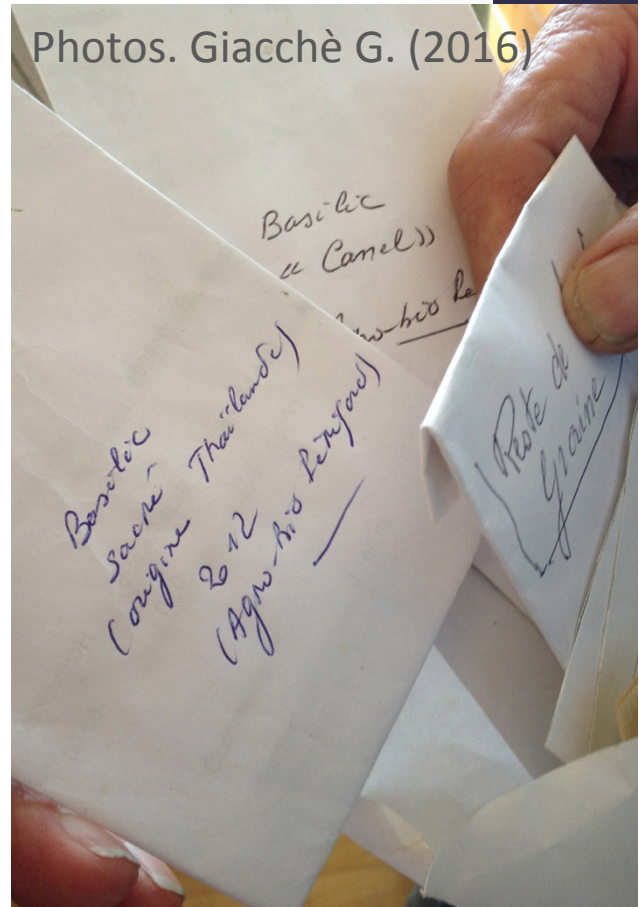 Photos. Giacchè G. (2016)
Basilic
« Canel »
Agro-bio Pé
Basilic
sacré
(origine Thaïlande)
2012
(Agro-bio Périgord)
Reste de
graine